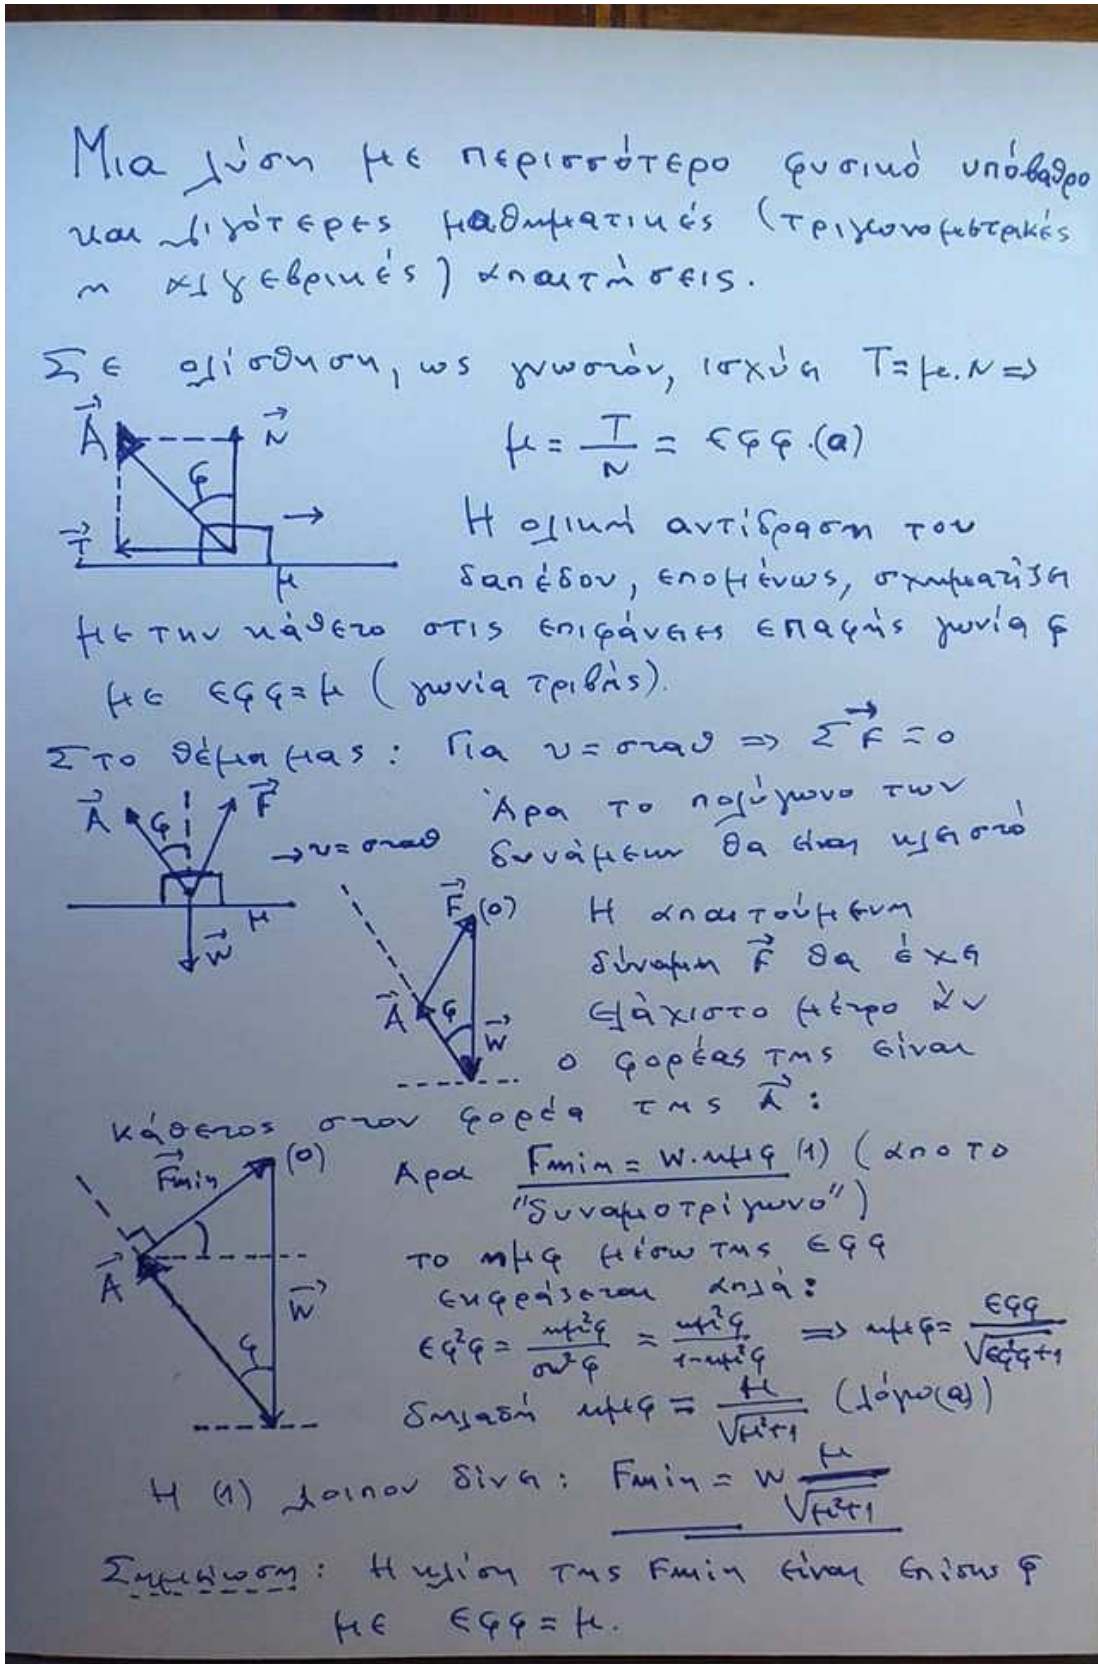 Μια λύση με περισσότερο φυσικό υπόβαθρο
και λιγότερες μαθηματικές (τριγωνομετρικές
ή αλγεβρικές) απαιτήσεις.
Σε ολίσθηση, ως γνωστόν, ισχύει T=μ.N ⇒
\vec{A} \vec{N} μ = T/N = εφφ.(a)
φ
\vec{T} → Η ολική αντίδραση του
μ δαπέδου, επομένως, σχηματίζει
με την κάθετο στις επιφάνειες επαφής γωνία φ
με εφφ=μ (γωνία τριβής).
Στο θέμα μας: Για υ=σταθ ⇒ Σ\vec{F}=0
\vec{A} φ \vec{F} Άρα το πολύγωνο των
→υ=σταθ δυνάμεων θα είναι κλειστό
μ \vec{W}
\vec{F} (0) Η απαιτούμενη
δύναμη \vec{F} θα έχει
\vec{A} φ \vec{W} ελάχιστο μέτρο αν
ο φορέας της είναι
κάθετος στον φορέα της \vec{A}:
\vec{F}min (0) Άρα Fmin = W.ημφ (1) (από το
"δυναμοτρίγωνο")
\vec{A} \vec{W} φ το ημφ μέσω της εφφ
εκφράζεται απλά:
εφ²φ = ημ²φ/συν²φ = ημ²φ/1-ημ²φ ⇒ ημφ = εφφ/√εφ²φ+1
δηλαδή ημφ = μ/√μ²+1 (λόγω(a))
Η (1) λοιπον δίνει: Fmin = W μ/√μ²+1
Σημείωση: Η κλίση της Fmin είναι επίσης φ
με εφφ=μ.